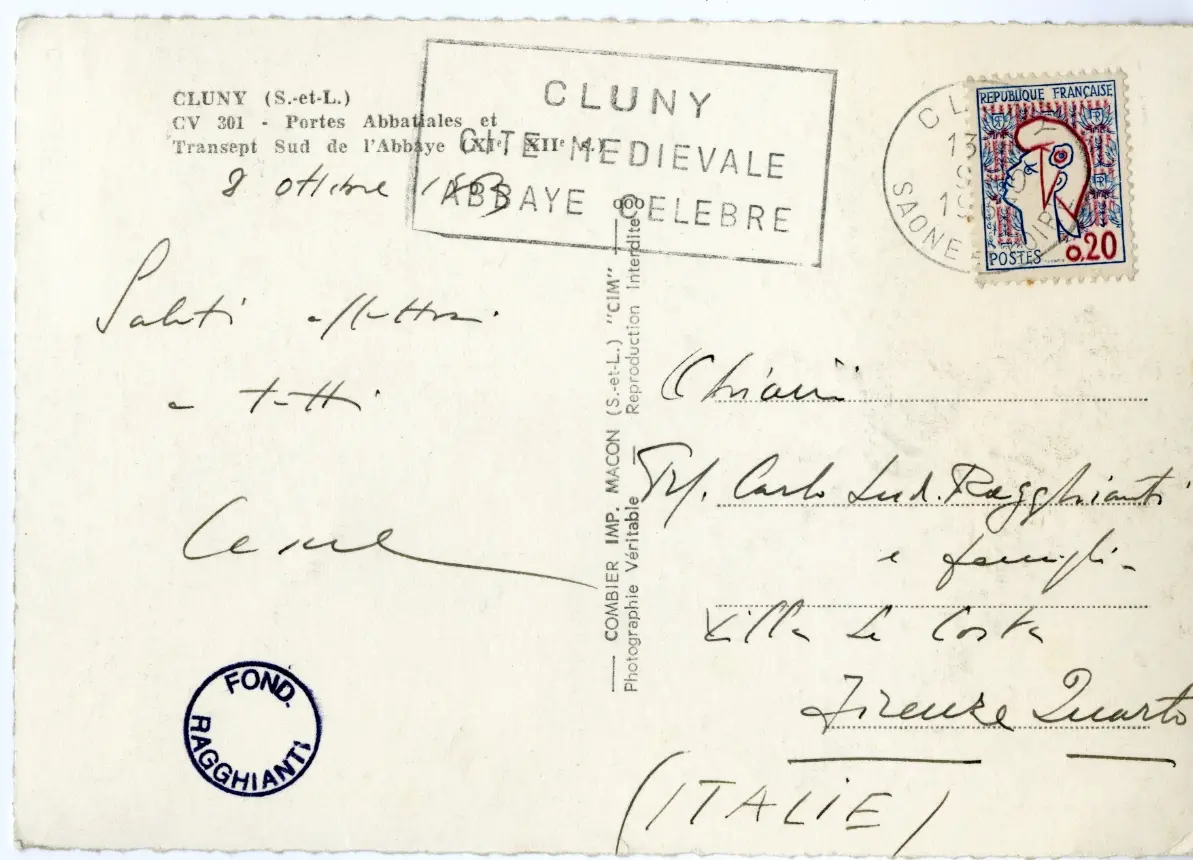 CLUNY (S.-et-L.)
CV 301 - Portes Abbatiales et
Transept Sud de l'Abbaye (XIe, XIIe s.)
8 ottobre
CLUNY
CITE MEDIEVALE
ABBAYE CELEBRE
CLUNY
13
SAONE ET LOIRE
REPUBLIQUE FRANÇAISE
POSTES 0,20
Saluti affettuosi
a tutti
— COMBIER IMP. MACON (S.-et-L.) "CIM" —
Photographie Véritable — Reproduction Interdite
Chiar.
Prof. Carlo Lud. Ragghianti
e famiglia
Villa La Costa
Firenze Quarto
(ITALIE)
FOND.
RAGGHIANTI